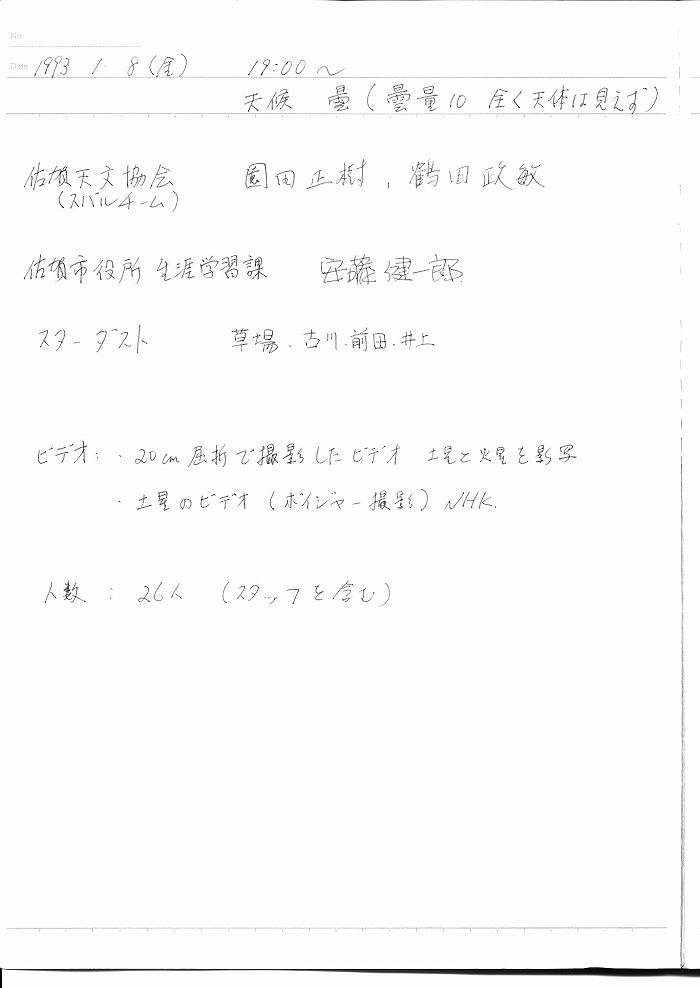 No.
Date 1993 1・8(金) 19:00〜
天候 曇(雲量10 全く天体は見えず)
佐賀天文協会 園田正樹, 鶴田政敏
(スバルチーム)
佐賀市役所 生涯学習課 安藤健一郎
スターダスト 草場.古川.前田.井上
ビデオ:・20cm屈折で撮影したビデオ 土星と火星を影写
・土星のビデオ(ボイジャー撮影)NHK.
人数 : 26人 (スタッフを含む)